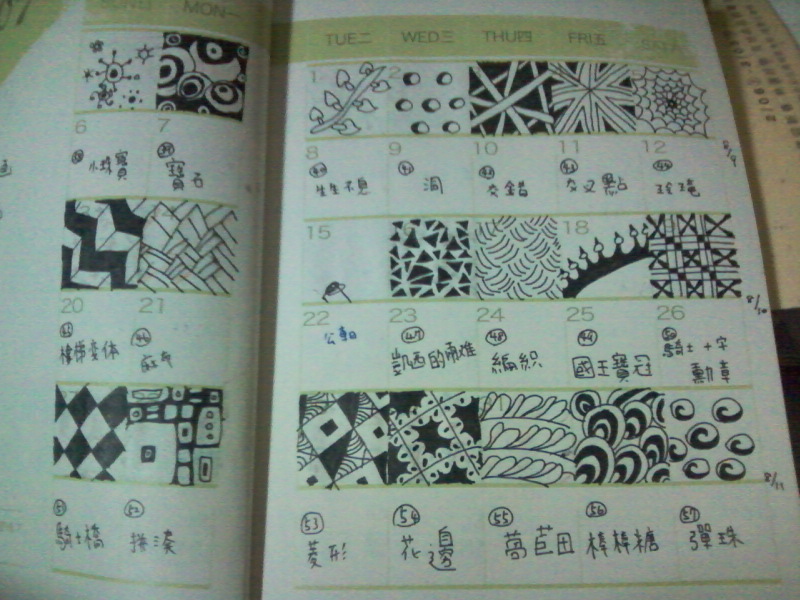 MON一
TUE二 WED三 THU四 FRI五
6 7
8 9 10 11 12
8/9
㊴
寶石
㊵ ㊶ ㊷ ㊸ ㊹
生生不息 洞 交錯 交叉點
15 18
8/10
20 21
22 23 24 25 26
㊺ ㊻ ㊼ ㊽ ㊾ ㊿
樓梯變体 公車 凱西的兩难 編織 國王寶冠 騎士十字
勳章
8/11
51 52
騎士橋 拼湊
53 54 55 56 57
菱形 花邊 萵苣田 棒棒糖 彈珠